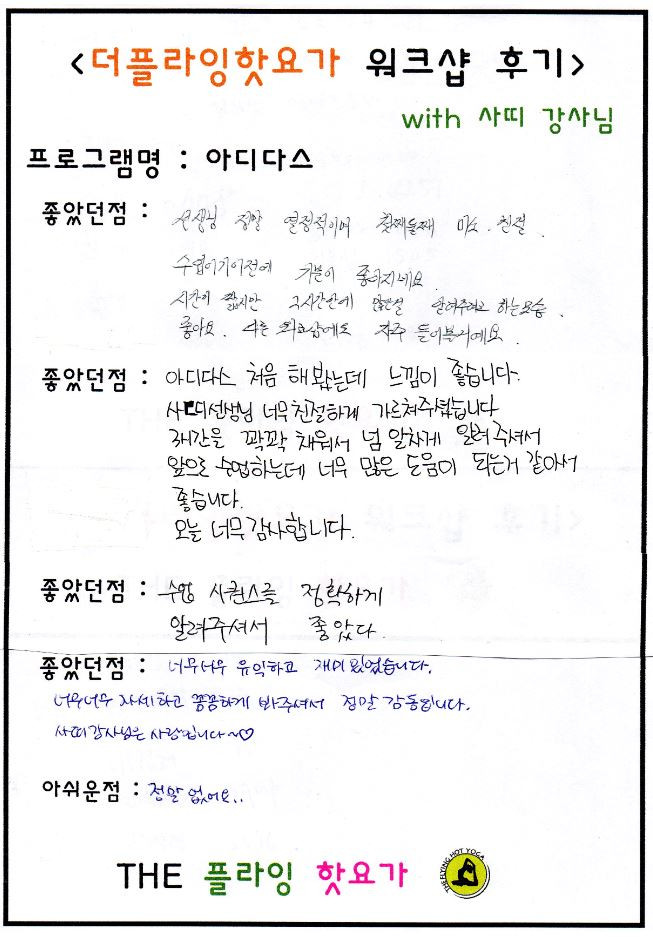 <더플라잉핫요가 워크샵 후기>
with 사띠 강사님
프로그램명 : 아디다스
좋았던점 : 선생님 정말 열정적이며 첫째둘째 미소. 친절.
수업이기이전에 기분이 좋아지네요.
시간이 짧지만 2시간안에 많은걸 알려주려고 하는모습
좋아요. 다른 워크샵에도 자주 들어볼게요.
좋았던점 : 아디다스 처음 해봤는데 느낌이 좋습니다.
사띠선생님 너무친절하게 가르쳐주셨습니다
2시간을 꽉꽉 채워서 넘 알차게 알려 주셔서
앞으로 수업하는데 너무 많은 도움이 되는거 같아서
좋습니다.
오늘 너무감사합니다.
좋았던점 : 수업 시퀀스를 정확하게
알려주셔서 좋았다.
좋았던점 : 너무너무 유익하고 재미있었습니다.
너무너무 자세하고 꼼꼼하게 봐주셔서 정말 감동입니다.
사띠강사님은 사랑입니다~♡
아쉬운점 : 정말 없어요..
THE 플라잉 핫요가
THE FLYING HOT YOGA